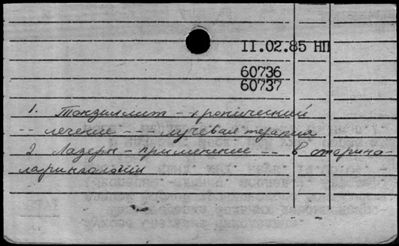 11.02.85 НП
60736
60737
1. Тонзиллит - хронический
-- лечение --- лучевая терапия
2. Лазеры - применение -- в оторино-
ларингологии